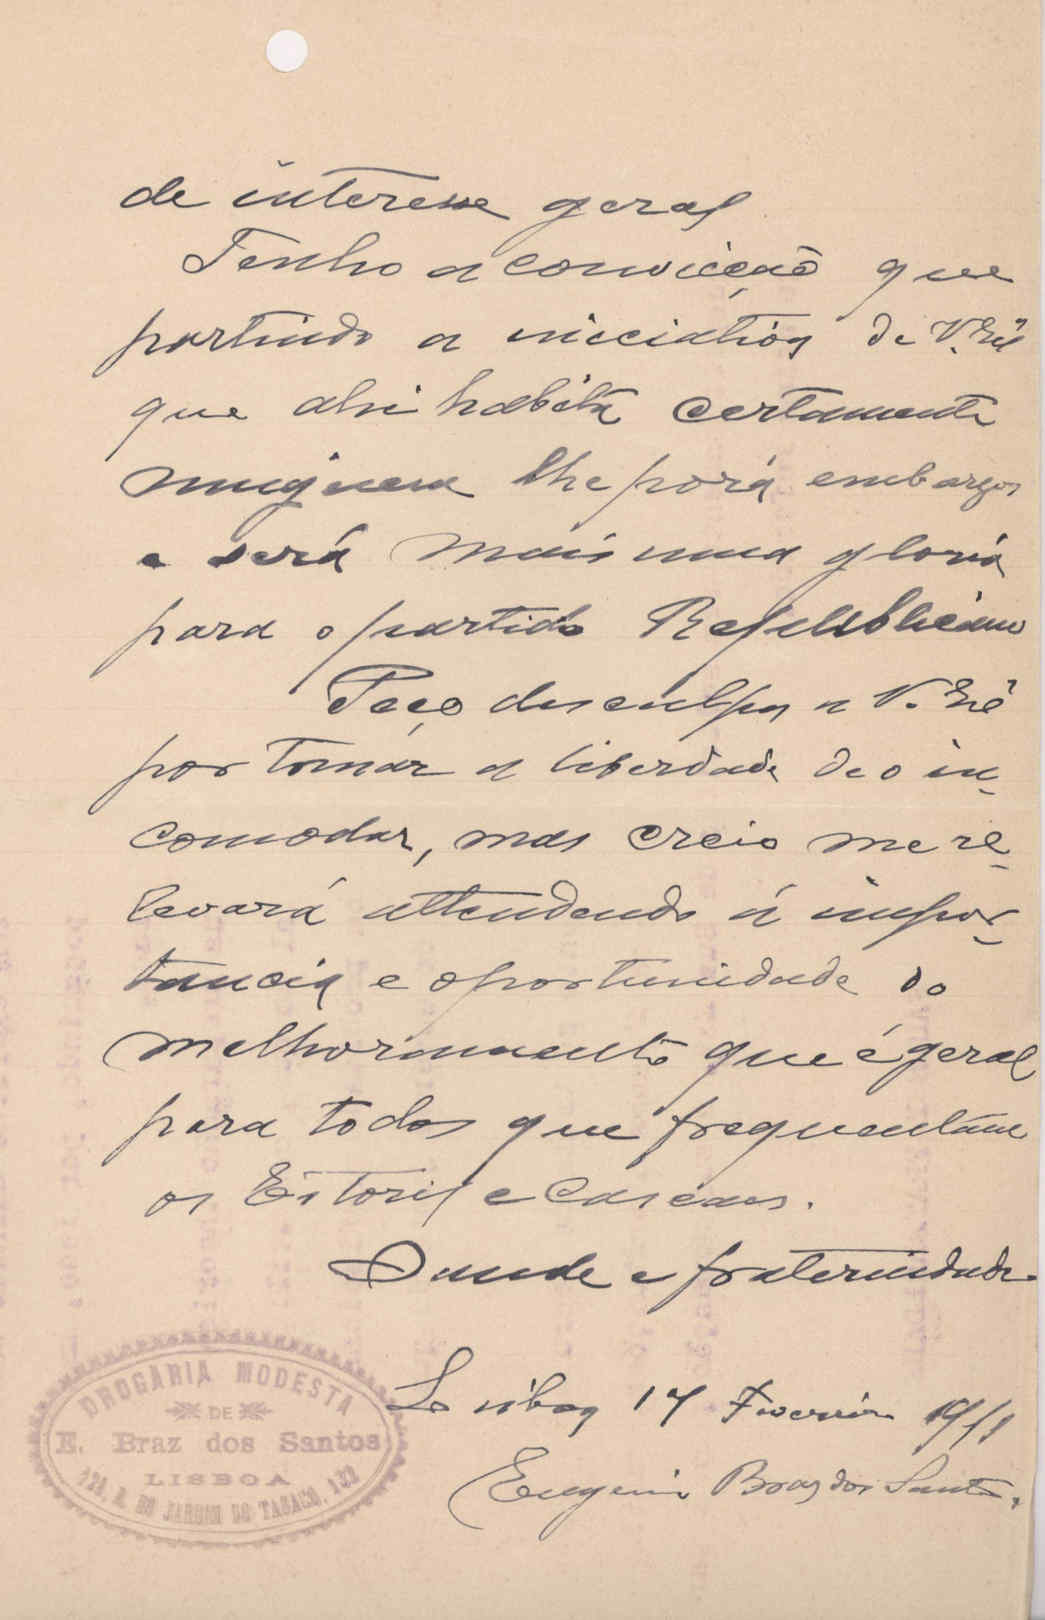 de interesse geral
Tenho a convicção que
partindo a iniciativa de V. Exª
que ahi habita certamente
ninguem lhe porá embargos
e será mais uma gloria
para o partido Republicano
Peço desculpa a V. Exª
por tomar a liberdade de o in-
comodar, mas creio me re-
levará attendendo á impor-
tancia e oportunidade do
melhoramento que é geral
para todos que frequentam
os Estoris e Cascaes.
Saude e fraternidade
Lisboa 17 Fevereiro 1911
Eugenio Braz dos Santos.
DROGARIA MODESTA
DE
E. Braz dos Santos
LISBOA
124, R. DO JARDIM DO TABACO, 132